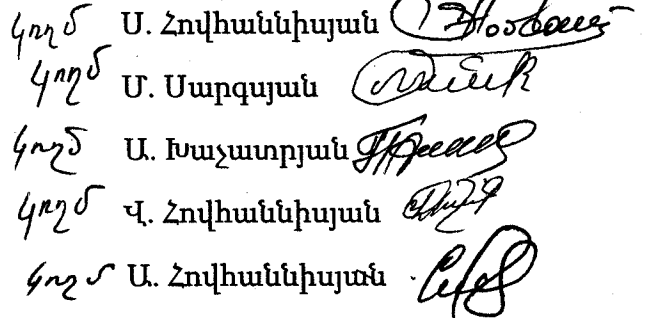 կողմ Ս. Հովհաննիսյան
կողմ Մ. Սարգսյան
կողմ Ա. Խաչատրյան
կողմ Վ. Հովհաննիսյան
կողմ Ա. Հովհաննիսյան